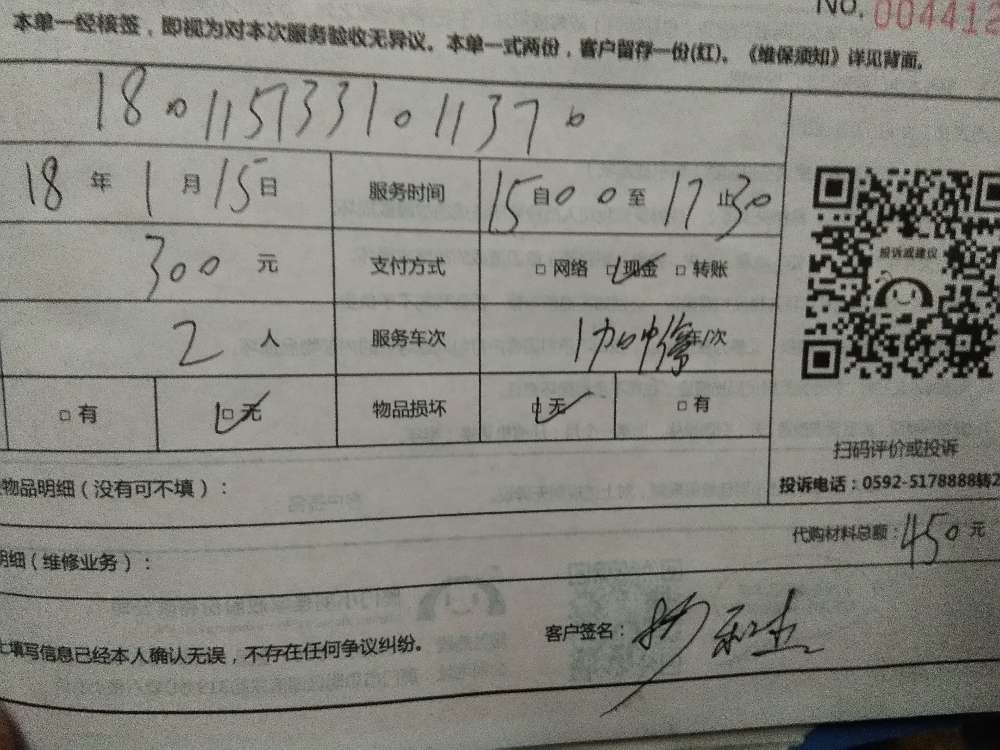 NO. 004412
本单一经核签，即视为对本次服务验收无异议。本单一式两份，客户留存一份(红)。《维保须知》详见背面。
1801151331011370
18 年 1 月 15 日 服务时间 15 自 00 至 17 止 30
300 元 支付方式 □ 网络 □ 现金 □ 转账
投诉或建议
2 人 服务车次 1 中 车/次
□ 有 □ 无 物品损坏 □ 无 □ 有
扫码评价或投诉
物品明细（没有可不填）：
投诉电话：0592-5178888转2
代购材料总额：450 元
明细（维修业务）：
客户签名：杨
填写信息已经本人确认无误，不存在任何争议纠纷。